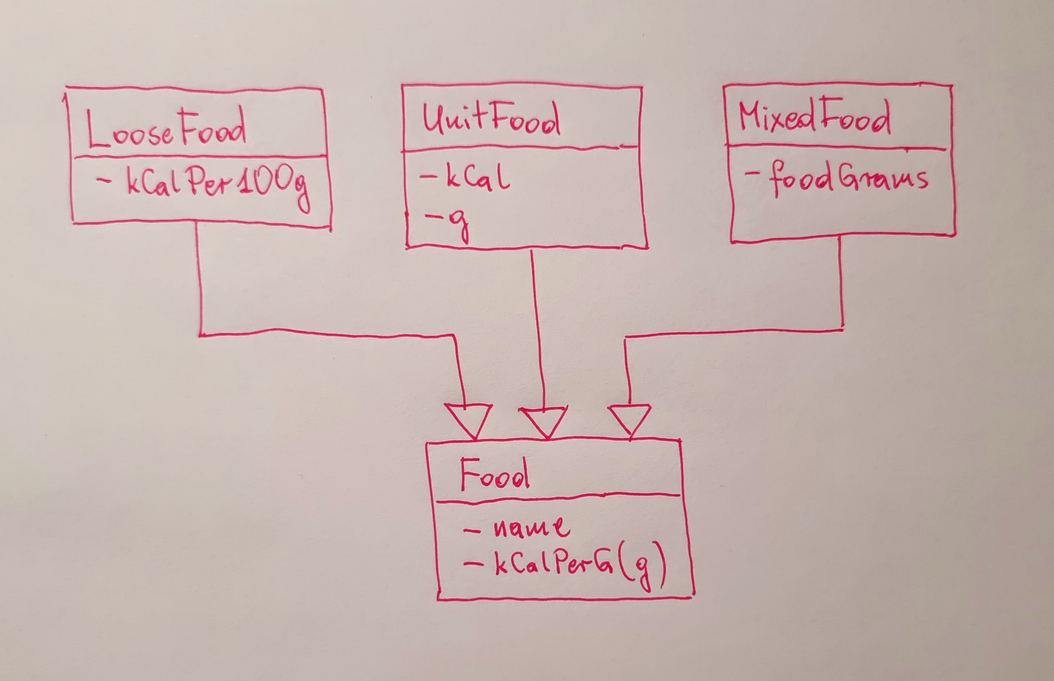 LooseFood
- kCalPer100g
UnitFood
- kCal
- g
MixedFood
- foodGrams
Food
- name
- kCalPerG(g)